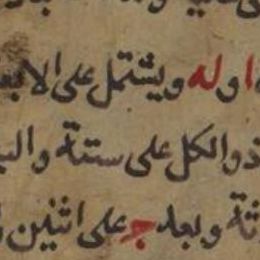 اوله ويشتمل على الابعا
ذو الكل على ستة والب
ثة وبعد ج على اثنين